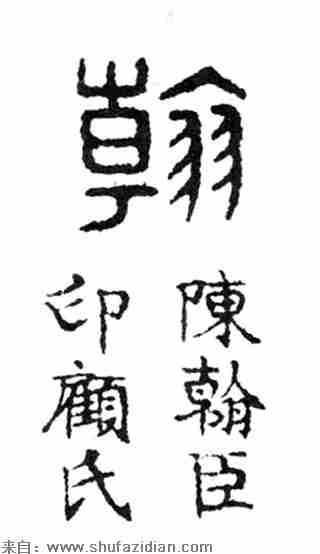 翰
陳翰臣
印顧氏
来自：www.shufazidian.com